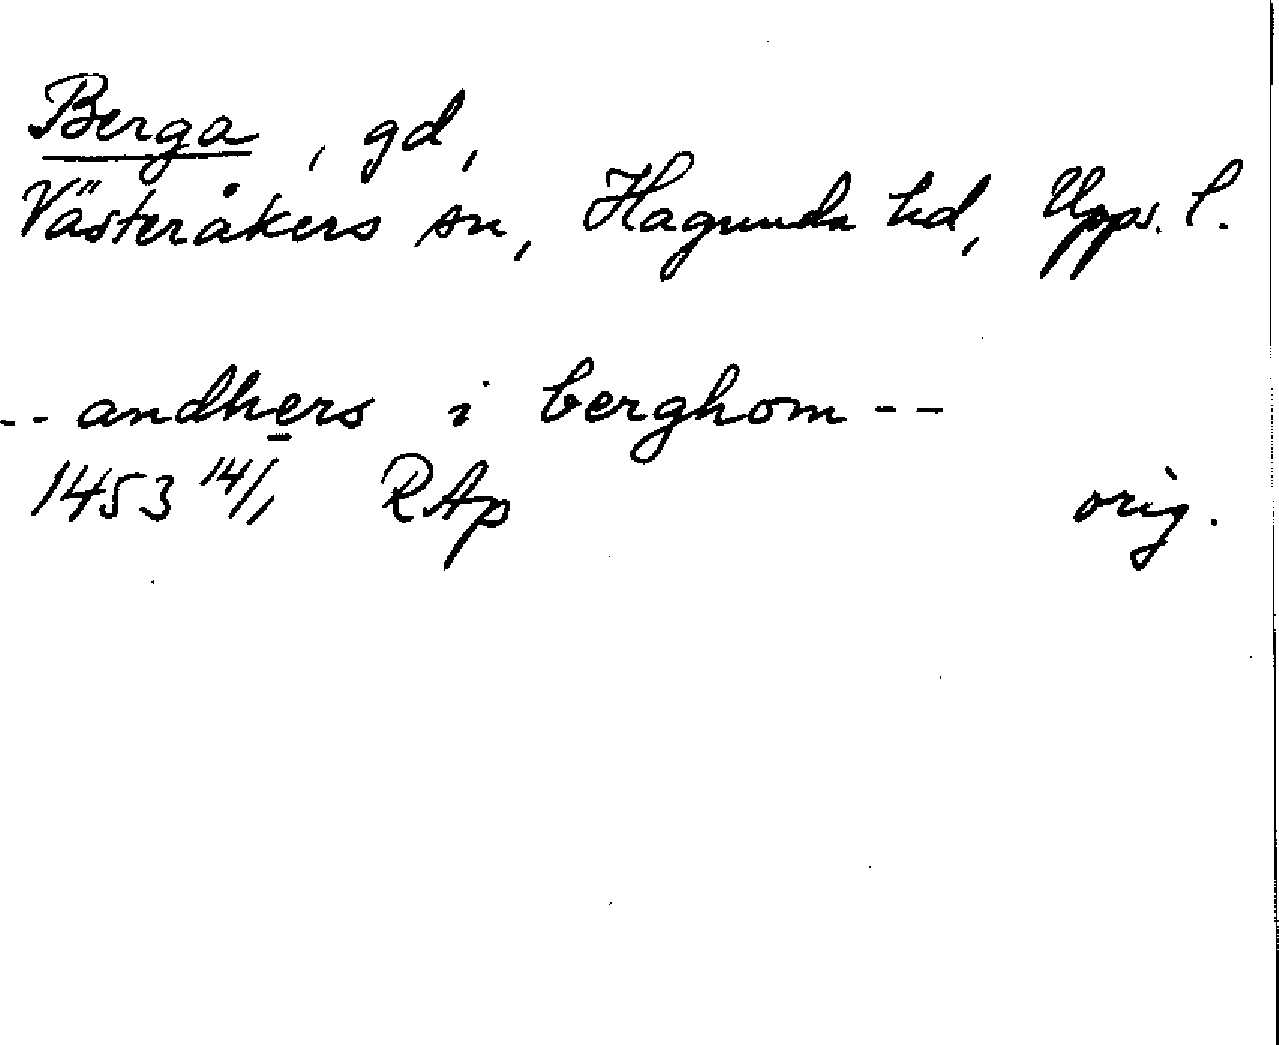 Berga, gd,
Västeråkers sn, Hagunda hd, Upps. l.
-- andhers i berghom --
1453 14/1 RAp orig.